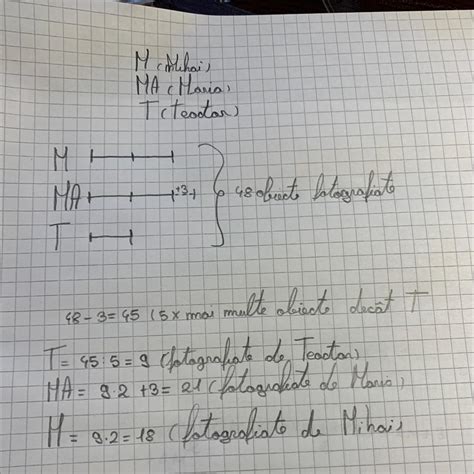 M (Mihai)
MA (Maria)
T (Teodor)
M
MA +3
T
48 obiecte fotografiate
48-3=45 (5x mai multe obiecte decât T
T= 45:5=9 (fotografiate de Teodor)
MA= 9.2+3=21 (fotografiate de Maria)
M=9.2=18 (fotografiate de Mihai)